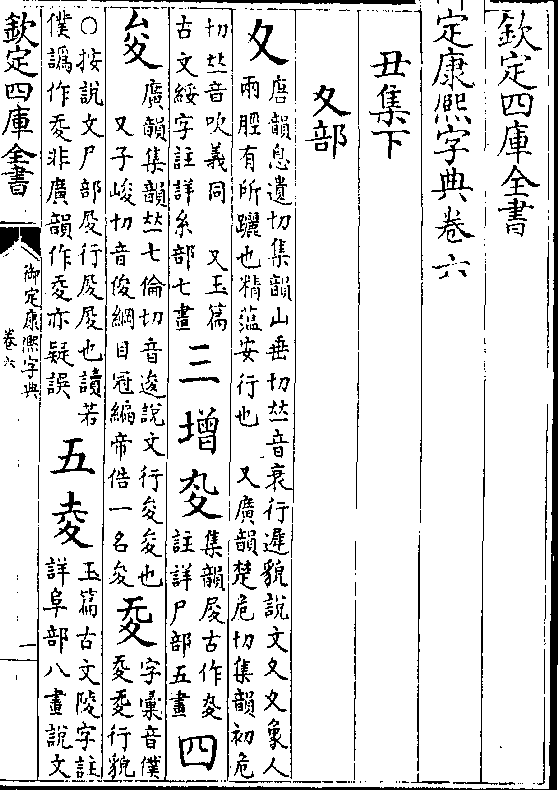 欽定四庫全書
定康熙字典卷六
丑集下
夊部
夊
唐韻息遺切集韻山垂切𠀤音衰行遲貌說文夊夊象人
兩脛有所躧也精薀安行也 又廣韻楚危切集韻初危
切𠀤音吹義同 又玉篇
古文綏字註詳糸部七畫
三
增
㚆
集韻𡰥古作㚆
註詳尸部五畫
四
夋
廣韻集韻𠀤七倫切音逡說文行夋夋也
又子峻切音俊綱目冠編帝俈一名夋
㚆
字彙音僕
行貌
○按說文尸部𡰫行𡰫𡰫也讀若
僕譌作 非廣韻作 亦疑誤
五
夌
玉篇古文陵字註
詳阜部八畫說文
欽定四庫全書
御定康熙字典
卷六
一